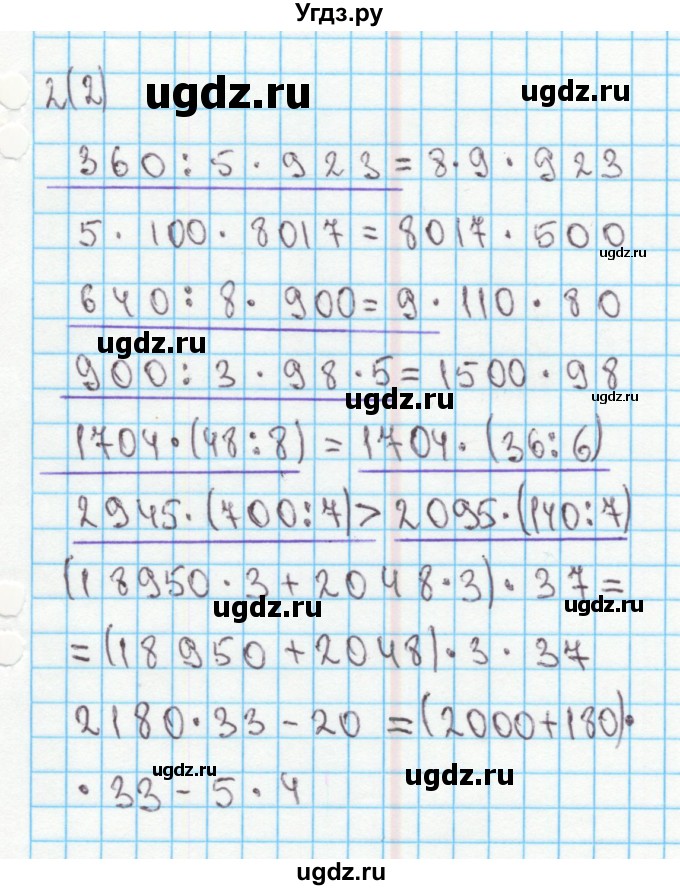 Угдз.ру
2(2)
ugdz.ru
ugdz.ru
360 : 5 · 923 = 8 · 9 · 923
5 · 100 · 8017 = 8017 · 500
ugdz.ru
640 : 8 · 900 = 9 · 110 · 80
ugdz.ru
900 : 3 · 98 · 5 = 1500 · 98
ugdz.ru
ugdz.ru
1704 · (48 : 8) = 1704 · (36 : 6)
2945 · (700 : 7) > 2095 · (140 : 7)
(18950 · 3 + 2048 · 3) · 37 =
ugdz.ru
ugdz.ru
= (18950 + 2048) · 3 · 37
2180 · 33 - 20 = (2000 + 180) ·
ugdz.ru
ugdz.ru
· 33 - 5 · 4
ugdz.ru
ugdz.ru